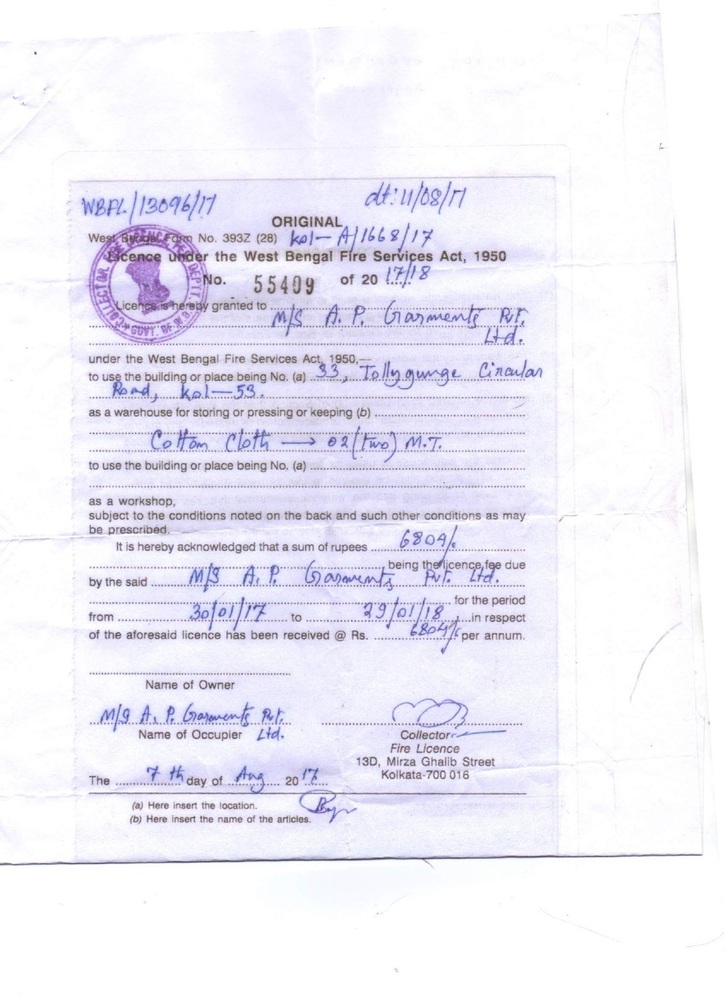 WBFL/13096/17 dt: 11/08/17
ORIGINAL
West Bengal Form No. 393Z (28) Kol-A/1668/17
Licence under the West Bengal Fire Services Act, 1950
No. 55409 of 20 17/18
Licence is hereby granted to M/S A. P. Garments Pvt.
Ltd.
under the West Bengal Fire Services Act, 1950,—
to use the building or place being No. (a) 33, Tollygunge Circular
Road, Kol-53.
as a warehouse for storing or pressing or keeping (b)
Cotton Cloth → 02 (two) M.T.
to use the building or place being No. (a)
as a workshop,
subject to the conditions noted on the back and such other conditions as may
be prescribed.
It is hereby acknowledged that a sum of rupees 6804/-
being the licence fee due
by the said M/S A. P. Garments Pvt. Ltd.
for the period
from 30/01/17 to 29/01/18 in respect
of the aforesaid licence has been received @ Rs. 6804/- per annum.
Name of Owner
M/S A. P. Garments Pvt.
Name of Occupier Ltd.
Collector
Fire Licence
13D, Mirza Ghalib Street
Kolkata-700 016
The 7th day of Aug 2017
(a) Here insert the location.
(b) Here insert the name of the articles.